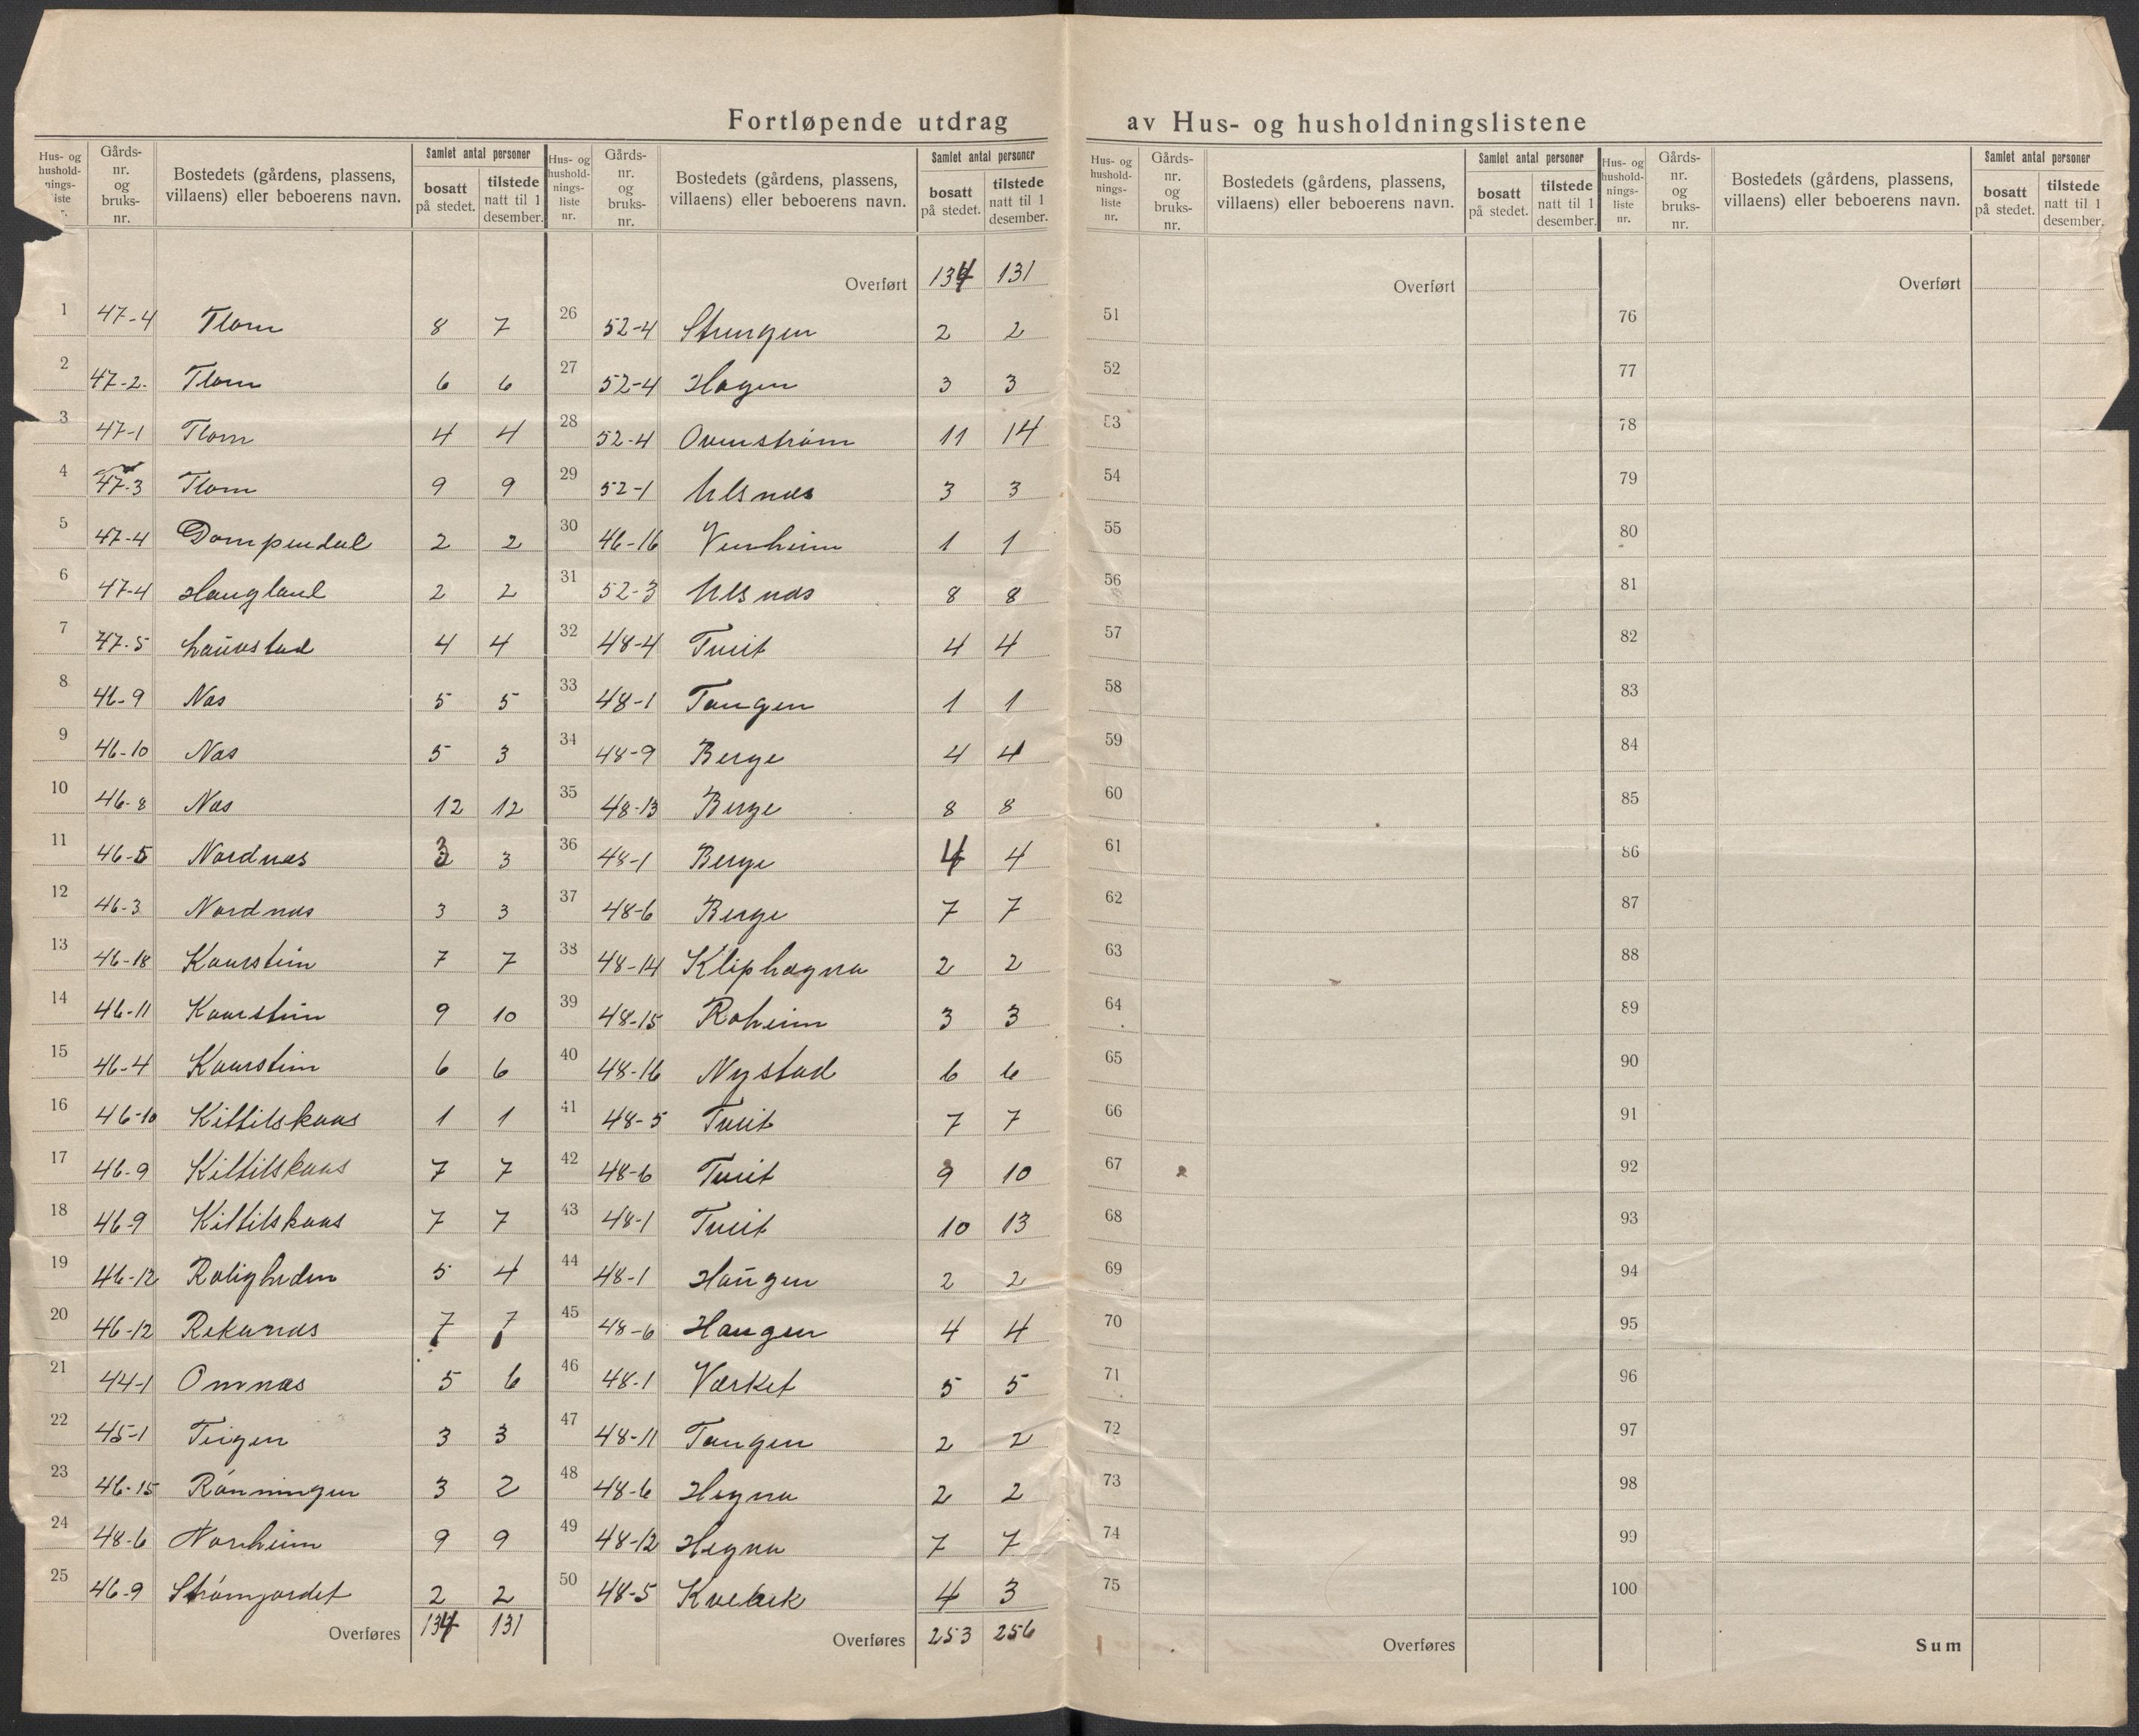 Fortløpende utdrag av Hus- og husholdningslistene
Hus- og hushold- nings- liste nr. | Gårds- nr. og bruks- nr. | Bostedets (gårdens, plassens, villaens) eller beboerens navn. | Samlet antal personer | bosatt på stedet. | tilstede natt til 1 desember.
1 47-4 Flom 8 7
2 47-2. Flom 6 6
3 47-1 Flom 4 4
4 47-3 Flom 9 9
5 47-4 Dompendal 2 2
6 47-4 Haugland 2 2
7 47-5 Launstad 4 4
8 46-9 Nas 5 5
9 46-10 Nas 5 3
10 46-8 Nas 12 12
11 46-5 Nordnas 3 3
12 46-3 Nordnas 3 3
13 46-18 Kaarstein 7 7
14 46-11 Kaarstein 9 10
15 46-4 Kaarstein 6 6
16 46-10 Kittilskaas 1 1
17 46-9 Kittilskaas 7 7
18 46-9 Kittilskaas 7 7
19 46-12 Roligheden 5 4
20 46-12 Rekanas 7 7
21 44-1 Omnas 5 6
22 45-1 Teigen 3 3
23 46-15 Rønningen 3 2
24 48-6 Norheim 9 9
25 46-9 Strømjordet 2 2
Overføres 134 131
Hus- og hushold- nings- liste nr. | Gårds- nr. og bruks- nr. | Bostedets (gårdens, plassens, villaens) eller beboerens navn. | Samlet antal personer | bosatt på stedet. | tilstede natt til 1 desember.
Overført 134 131
26 52-4 Strengen 2 2
27 52-4 Hagen 3 3
28 52-4 Ovenstrøm 11 14
29 52-1 Ulsnas 3 3
30 46-16 Venheim 1 1
31 52-3 Ulsnas 8 8
32 48-4 Tveit 4 4
33 48-1 Tangen 1 1
34 48-9 Berge 4 4
35 48-13 Berge 8 8
36 48-1 Berge 4 4
37 48-6 Berge 7 7
38 48-14 Kliphagna 2 2
39 48-15 Roheim 3 3
40 48-16 Nystad 6 6
41 48-5 Tveit 7 7
42 48-6 Tveit 9 10
43 48-1 Tveit 10 13
44 48-1 Haugen 2 2
45 48-6 Haugen 4 4
46 48-1 Værket 5 5
47 48-11 Tangen 2 2
48 48-6 Hegna 2 2
49 48-12 Hegna 7 7
50 48-5 Kvebek 4 3
Overføres 253 256
Hus- og hushold- nings- liste nr. | Gårds- nr. og bruks- nr. | Bostedets (gårdens, plassens, villaens) eller beboerens navn. | Samlet antal personer | bosatt på stedet. | tilstede natt til 1 desember.
Overført
51
52
53
54
55
56
57
58
59
60
61
62
63
64
65
66
67
68
69
70
71
72
73
74
75
Overføres
Hus- og hushold- nings- liste nr. | Gårds- nr. og bruks- nr. | Bostedets (gårdens, plassens, villaens) eller beboerens navn. | Samlet antal personer | bosatt på stedet. | tilstede natt til 1 desember.
Overført
76
77
78
79
80
81
82
83
84
85
86
87
88
89
90
91
92
93
94
95
96
97
98
99
100
Sum